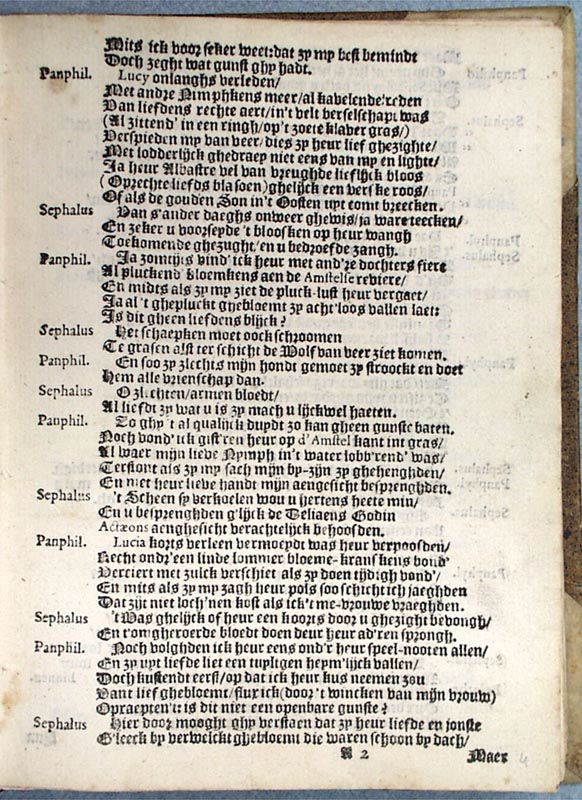 Mits ick voor seker weet: dat zy my best bemindt
Doch zeght wat gunst ghy hadt.
Panphil. Lucy onlanghs verleden/
Met andre Nimphkens meer/ al kavelende reden
Van liefdens rechte aert/ in't velt verselschapt was
(Al zittend' in een ringh/ op't zoete klaver gras/)
Verspieden my van veer/ dies zy heur lief ghezighte/
Met lodderlijck ghedraey niet eens van my en lighte/
Ja heur Albastre vel van vreughde lieflijck bloos
(Oprechte liefds blasoen) ghelijck een versche roos/
Of als de gouden Son in't Oosten upt comt breecken.
Sephalus Van s'ander daeghs onweer ghewis/ ja ware teecken/
En zeker u voorseyde 't bloosken op heur wangh
Toekomende ghezught/ en u bedroefde zangh.
Panphil. Ja zomtijts vind' ick heur met and're dochters fiere
Al pluckend' bloemkens aen de Amstelse reviere/
En midts als zy my ziet de pluck-lust heur vergaet/
Ja al 't ghepluckt ghebloemt zy acht'loos vallen laet:
Is dit gheen liefdens blijck?
Sephalus Het schaepken moet oock schroomen
Te grasen alst ter schicht de Wolf van veer ziet komen.
Panphil. En soo zy slechts mijn hondt gemoet zy stroockt en doet
Hem alle vrienschap dan.
Sephalus O slechten/ armen bloedt/
Al liefdt zy wat u is zy mach u lijckwel haeten.
Panphil. Zo ghy 't al qualijck duydt zo kan gheen gunste baten.
Noch vond' ick gist'ren heur op d'Amstel kant int gras/
Al waer mijn lieve Nymph in't water lobb'rend' was/
Terstont als zy my sach mijn by-zijn zy ghehenghden/
En met heur lieve handt mijn aengesicht besprenghden.
Sephalus 't Scheen zy verkoelen wou u hertens heete min/
En u besprenghden g'lijck de Deliaens Godin
Actæons aenghesicht verachtelijck behoosden.
Panphil. Lucia korts verleen vermoeydt was heur verpoosden/
Recht ondr'een linde lommer bloeme-kranskens vond'
Verciert met zulck verschiet als zy doen tijdigh vond'/
En mits als zy my zagh heur pols soo schicht ich jaeghden
Dat zijt niet loch'nen kost als ick't me-vrouwe vraeghden.
Sephalus 't Was ghelijck of heur een koorts door u ghezight bevongh/
En t'omgheroerde bloedt doen deur heur ad'ren sprongh.
Panphil. Noch volghden ick heur eens ond'r heur speel-nooten allen/
En zy upt liefde liet een tuyltgen heym'lijck vallen/
Doch kustent eerst/ op dat ick heur kus neemen zou
Vant lief ghebloemt/ flux ick (door 't wincken van mijn vrouw)
Opraepten 't: is dit niet een openbare gunste?
Sephalus Hier door mooght ghy verstaen dat zy heur liefde en jonste
G'leeck by verwelckt ghebloemt die waren schoon by dach/
A 2 Maer